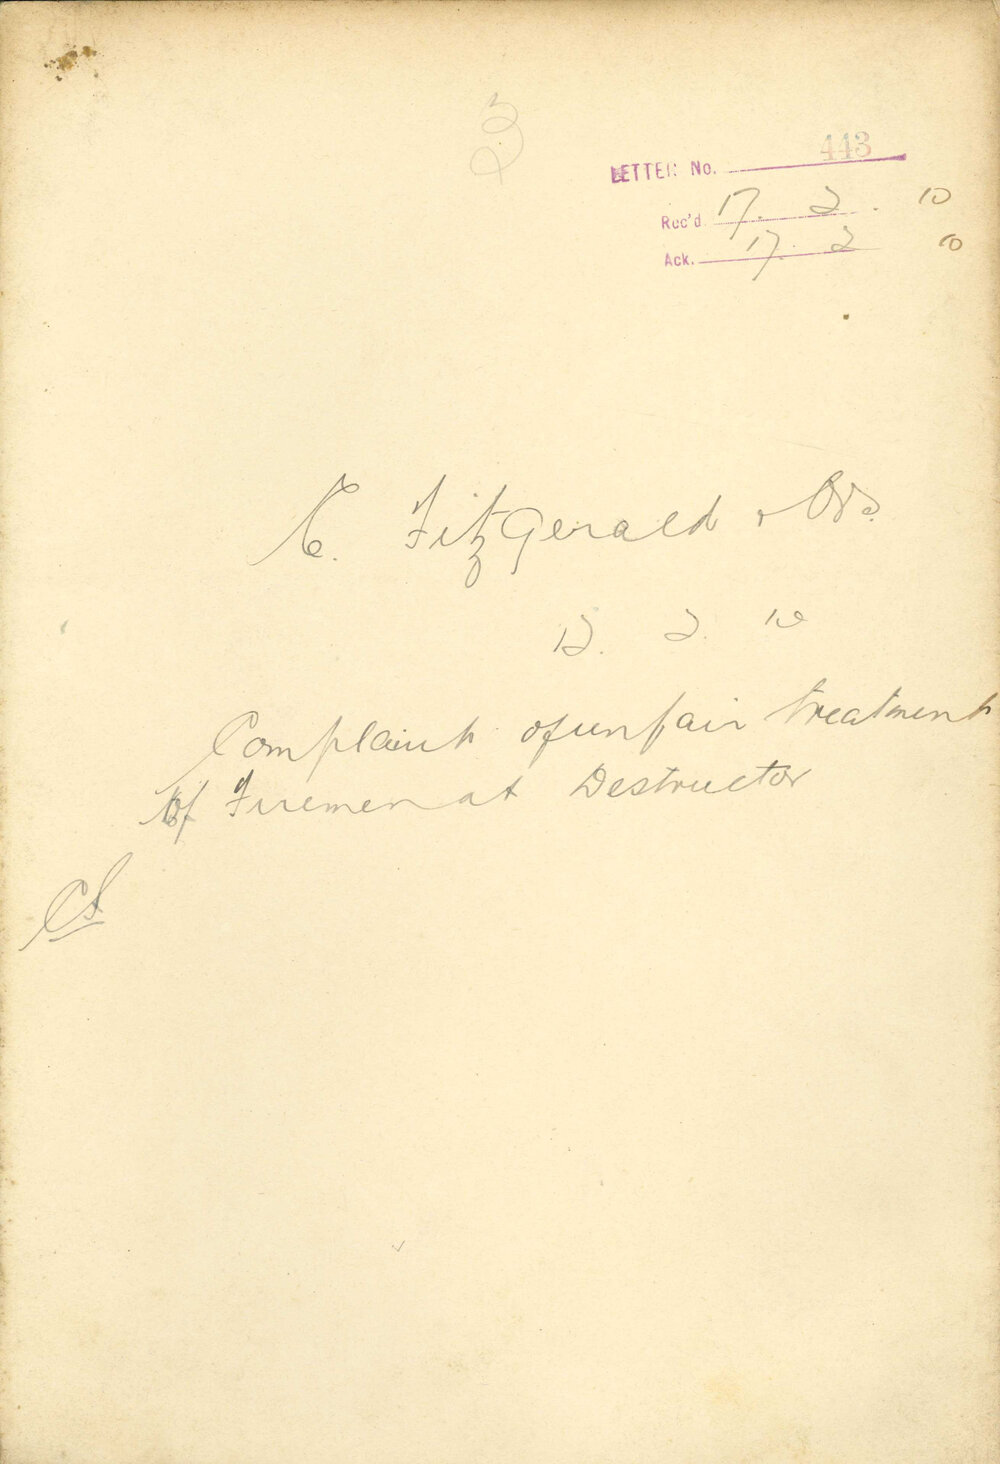 23
LETTER No. 443
Rec'd 17. 2. 10
Ack. 17. 2 10
C. FitzGerald & Ors.
12. 2. 10
Complaint of unfair treatment
of Firemen at Destructor
CS